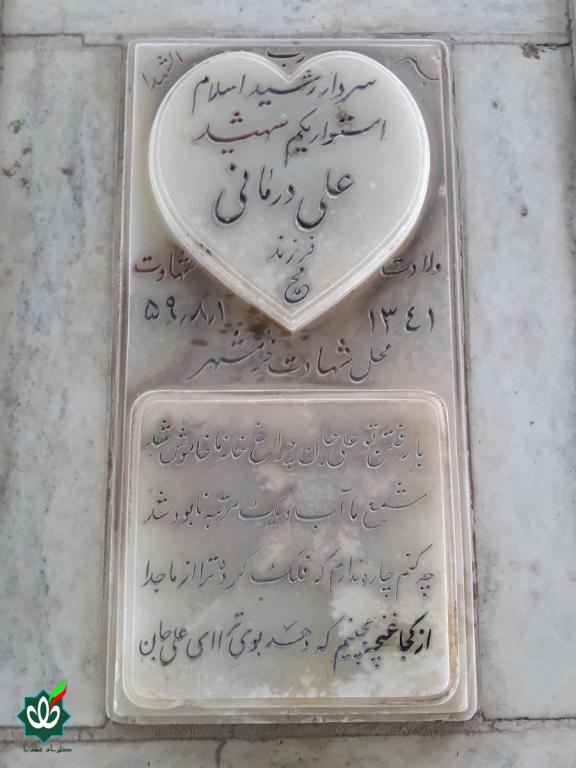 ب رب الشهدا
سردار رشید اسلام
استوار یکم شهید
علی درمانی
فرزند
ولادت شهادت
۱۳۴۱ ۵۹٫۸٫۱
محل شهادت خرمشهر
با رفتن تو علی جان چراغ خانه ما خاموش شد
شمع ما آب و یک مرتبه نابود شد
چه کنم چاره ندارم که فلک کرده ترا از ما جدا
از کجا غنچه بچینیم که دهد بوی ترا ای علی جان